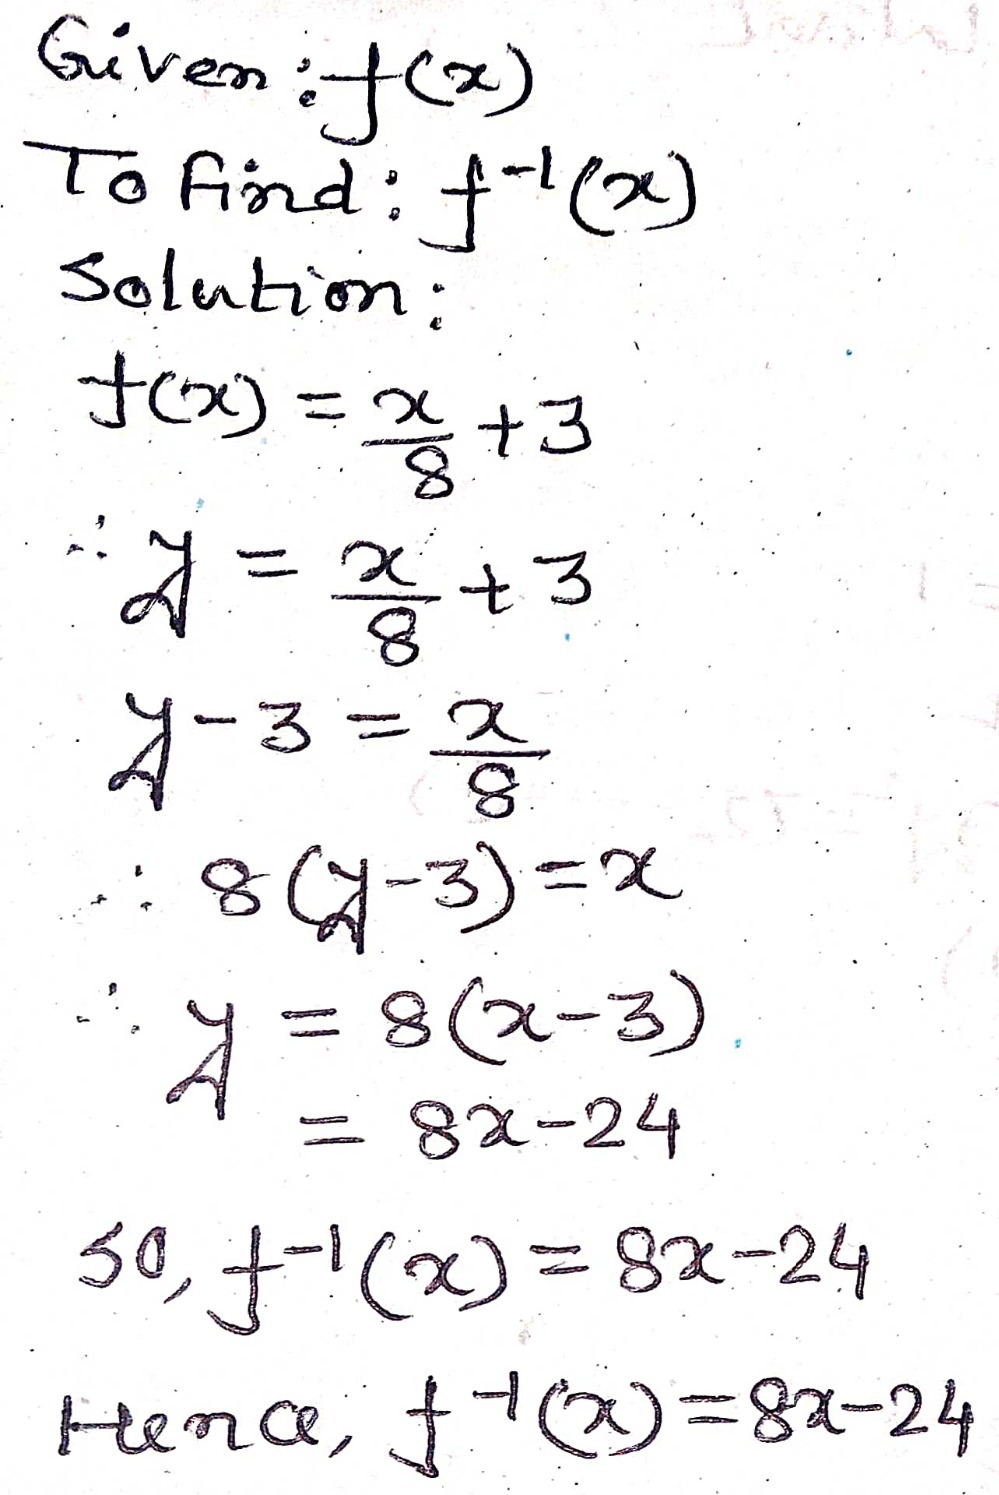 Given: f(x)
To find: f⁻¹(x)
Solution:
f(x) = x/8 + 3
∴ y = x/8 + 3
y - 3 = x/8
∴ 8(y-3) = x
∴ y = 8(x-3)
= 8x-24
so, f⁻¹(x) = 8x-24
Hence, f⁻¹(x) = 8x-24